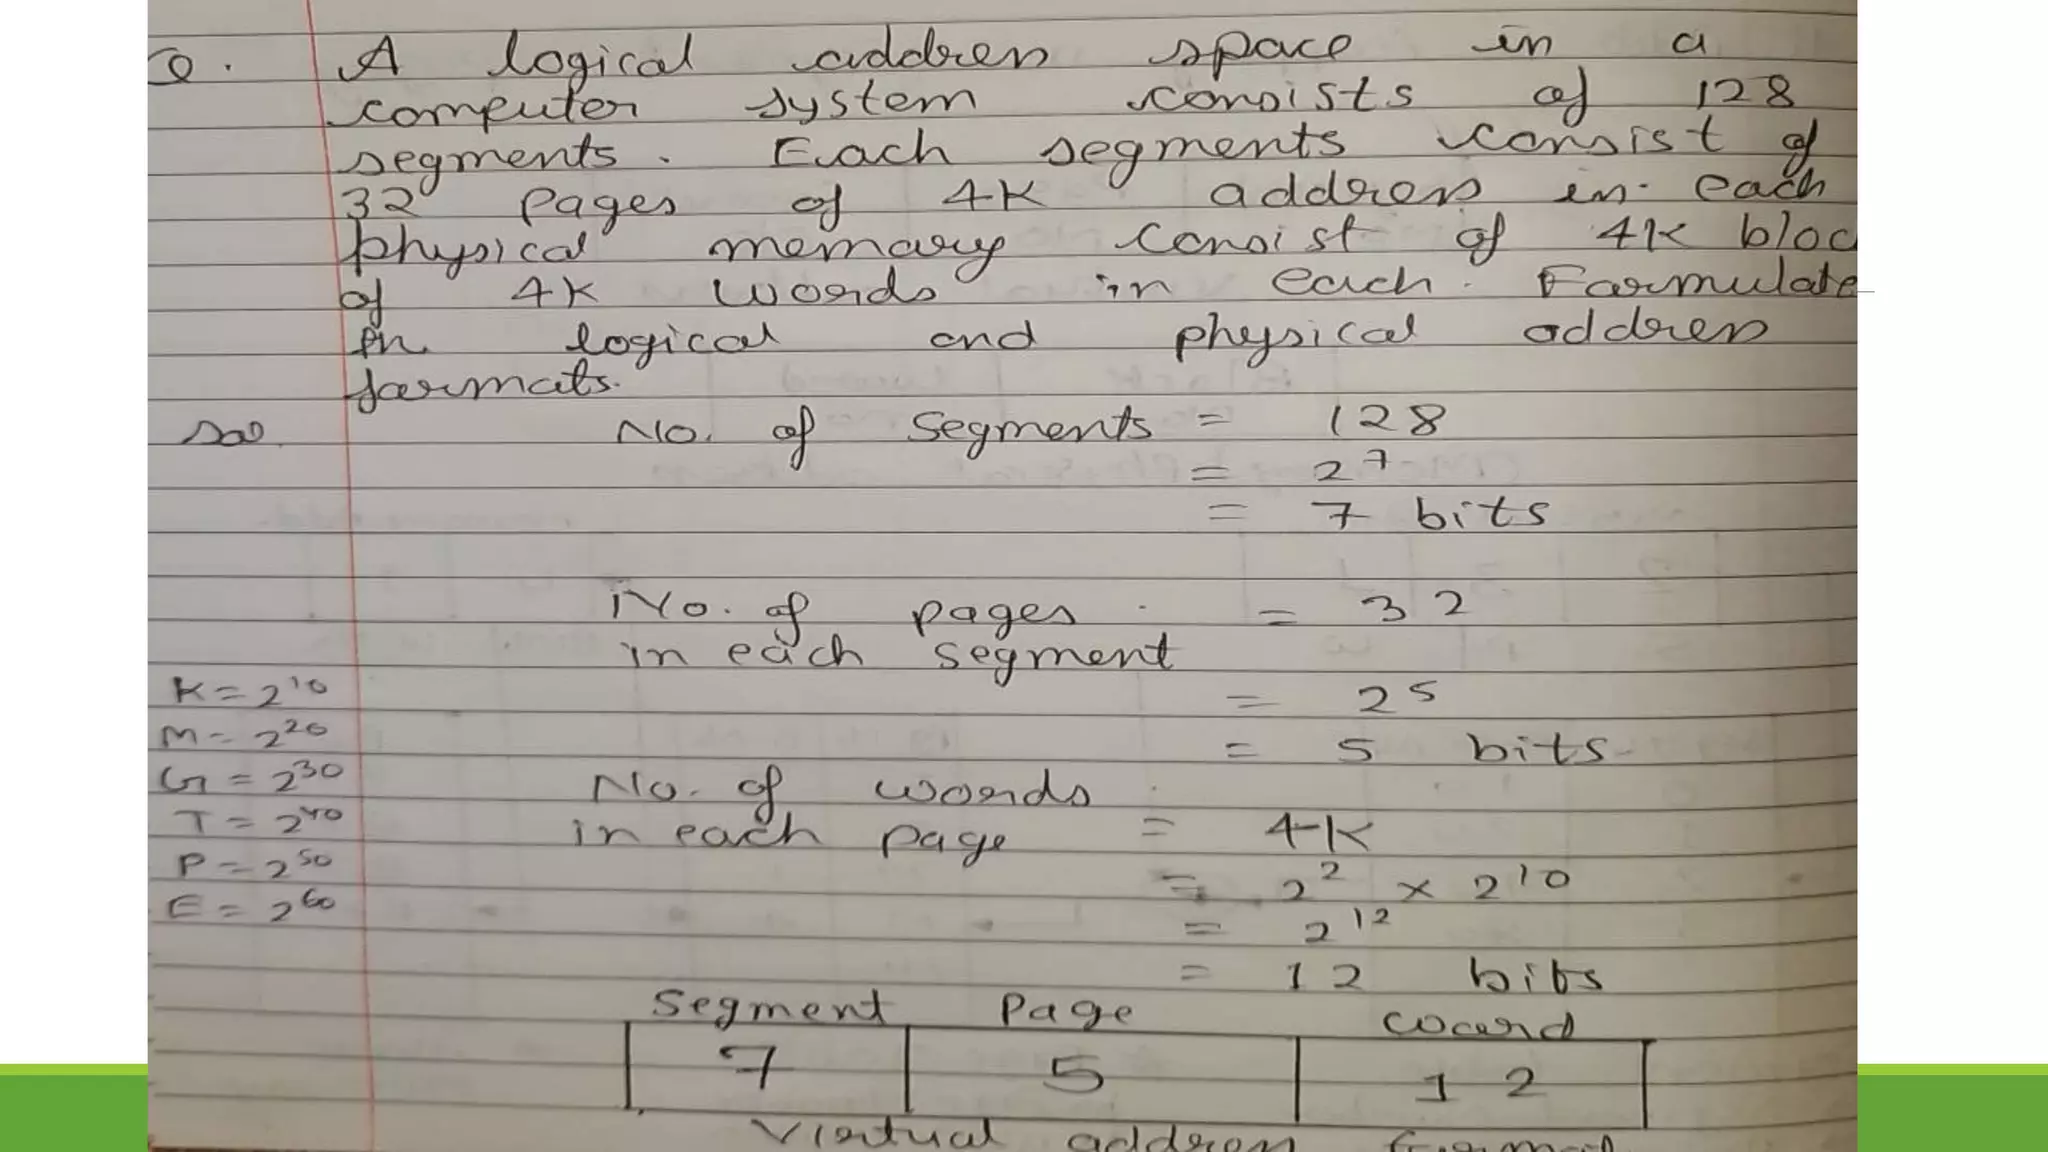 Q. A logical address space in a
computer system consists of 128
segments. Each segments consist of
32 pages of 4K address in each
physical memory consist of 4K bloc
of 4K words in each. Formulate
in logical and physical address
formats.
Sol. No. of segments = 128
= 2^7
= 7 bits
No. of pages = 32
in each segment
= 2^5
= 5 bits
No. of words
in each page = 4K
= 2^2 × 2^10
= 2^12
= 12 bits
K = 2^10
M = 2^20
G = 2^30
T = 2^40
P = 2^50
E = 2^60
Segment Page Word
7 5 12
Virtual address format